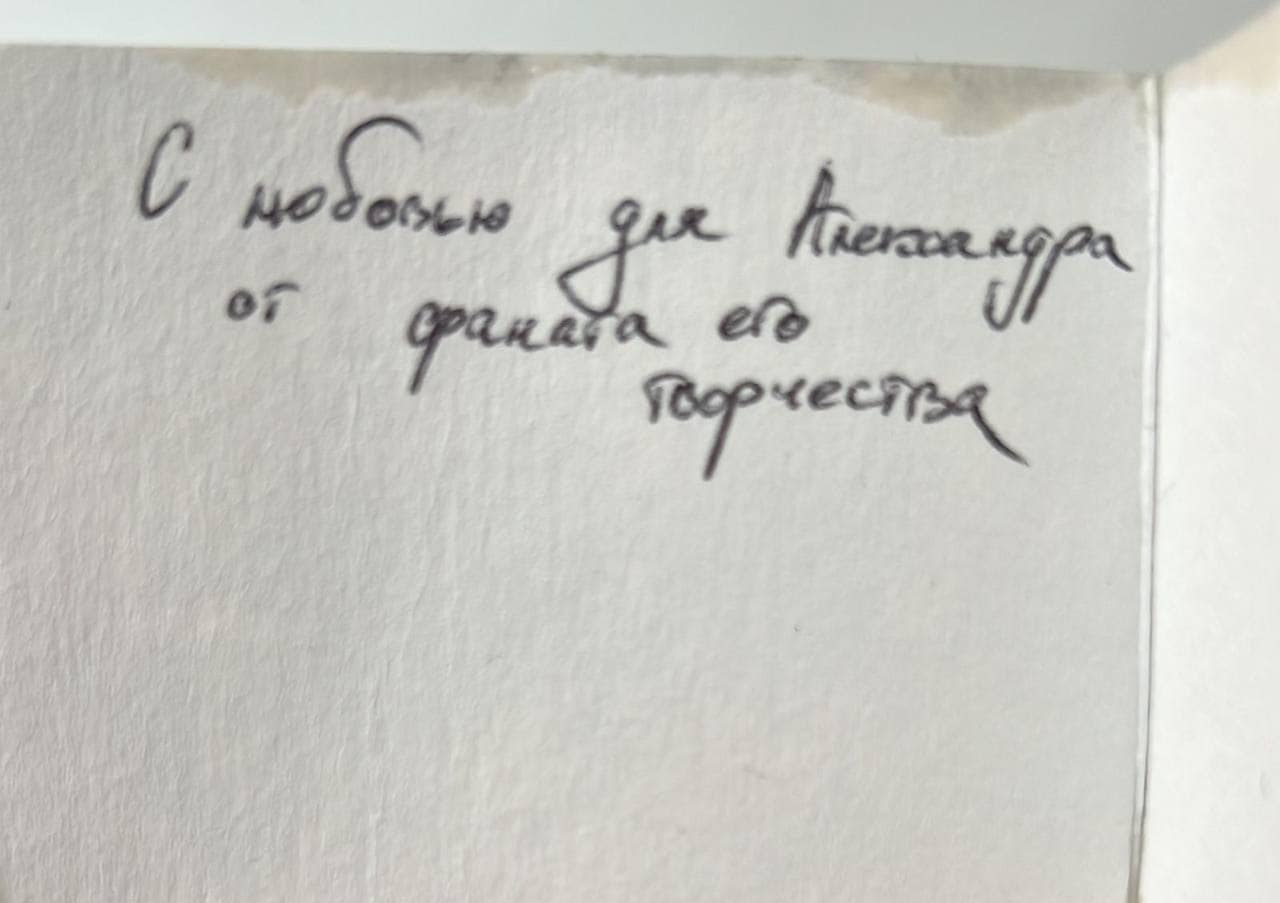 С любовью для Александра
от фаната его
творчества